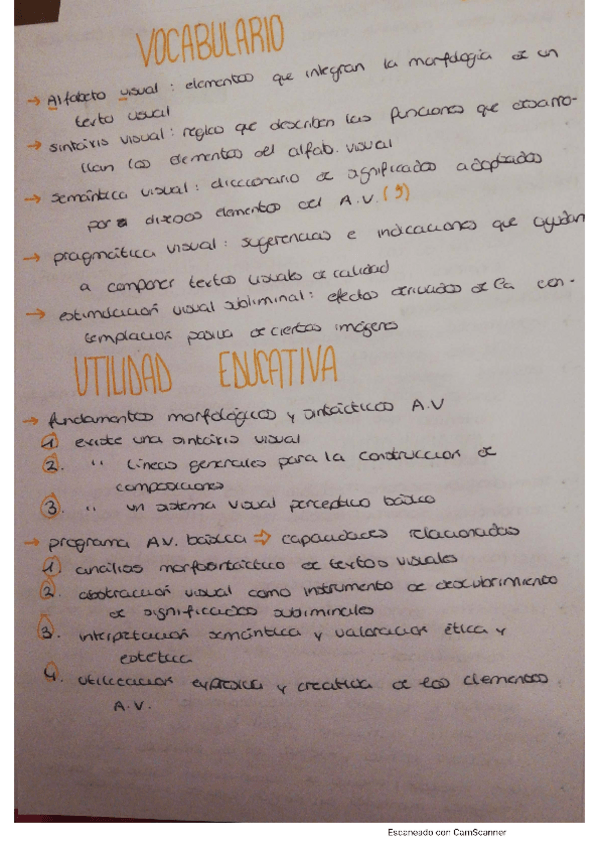 VOCABULARIO
→ Alfabeto visual : elementos que integran la morfología de un
texto visual
→ sintaxis visual : reglas que describen las funciones que desarro-
llan los elementos del alfab. visual
→ semántica visual : diccionario de significados adoptados
por diversos elementos del A.V. (9)
→ pragmática visual : sugerencias e indicaciones que ayudan
a componer textos visuales de calidad
→ estimulación visual subliminal : efectos derivados de la con-
templación pasiva de ciertas imágenes
UTILIDAD EDUCATIVA
→ fundamentos morfológicos y sintácticos A.V
1. existe una sintaxis visual
2. " líneas generales para la construcción de
composiciones
3. " un sistema visual perceptivo básico
→ programa A.V. básica ⇒ capacidades relacionadas
1. análisis morfosintáctico de textos visuales
2. abstracción visual como instrumento de descubrimiento
de significados subliminales
3. interpretación semántica y valoración ética y
estética
4. utilización expresiva y creativa de los elementos
A.V.
Escaneado con CamScanner